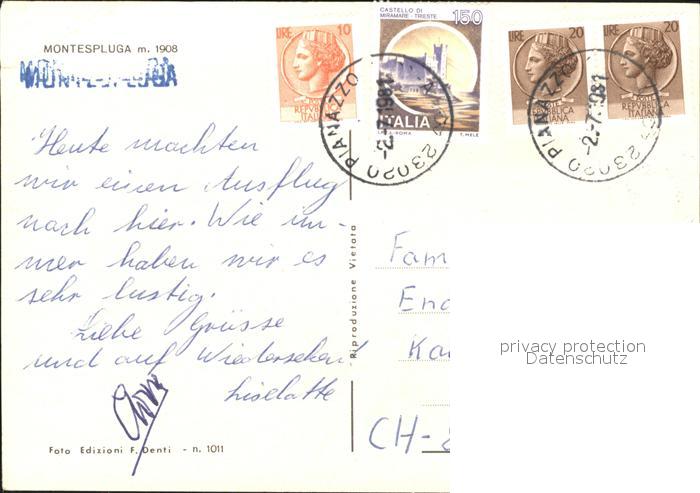 MONTESPLUGA m. 1908
MONTESPLUGA
LIRE 10
CASTELLO DI
MIRAMARE - TRIESTE
150
ITALIA
I.P.Z.S. ROMA
T. MELE
LIRE 20
POSTE
REPVBBLICA
ITALIANA
LIRE 20
POSTE
REPVBBLICA
ITALIANA
23020 PIANAZZO
-2.-7.1981
23020 PIANAZZO
-2.-7.1981
Heute machten
wir einen Ausflug
nach hier. Wie im-
mer haben wir es
sehr lustig.
Liebe Grüsse
und auf Wiedersehen!
Liselotte
Riproduzione Vietata
Fam
End
Ka
CH-
privacy protection
Datenschutz
Foto Edizioni F. Denti - n. 1011